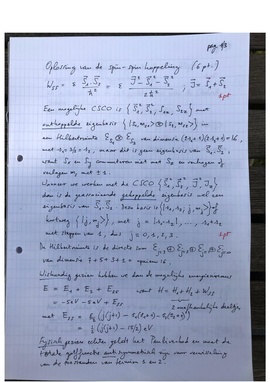 pag 4/5
Oplossing van de spin-spin koppeling (6 pt.)
W_SS = ε S⃗₁·S⃗₂ / ħ² = ε (J⃗² - S⃗₁² - S⃗₂²) / 2ħ² ; J⃗ = S⃗₁ + S⃗₂
1pt
Een mogelijke CSCO is {S⃗₁², S⃗₂², S₁z, S₂z} met
ontkoppelde eigenbasis {|s₁,m₁> ⊗ |s₂,m₂>} in
een Hilbertruimte ℰ_s₁ ⊗ ℰ_s₂ van dimensie (2s₁+1)(2s₂+1) = 16,
met s₁ = 3/2 = s₂, maar dit is geen eigenbasis van S⃗₁·S⃗₂,
want Sx en Sy commuteren niet met Sz en verhogen of
verlagen m met ± 1.
Wanneer we werken met de CSCO {S⃗₁², S⃗₂², J⃗², Jz}
dan is de geassocieerde gekoppelde eigenbasis wel een eigenbasis
van S⃗₁·S⃗₂. Deze basis is {|s₁,s₂,j,m_j>} of
kortweg {|j,m_j>}, met j = |s₁-s₂|, ..., s₁+s₂
met stappen van 1, dus j = 0, 1, 2, 3.
1pt
De Hilbertruimte is de directe som ℰ_j=3 ⊕ ℰ_j=2 ⊕ ℰ_j=1 ⊕ ℰ_j=0
van dimensie 7+5+3+1 = opnieuw 16.
Wiskundig gezien hebben we dan de mogelijke energieniveaus
E = E₁ + E₂ + E_SS want H = H₁ + H₂ + W_SS
= -5eV - 5eV + E_SS 2 onafhankelijke deeltjes
met E_SS = ε/2 (j(j+1) - s₁(s₁+1) - s₂(s₂+1))
= ½ (j(j+1) - 15/2) eV
Fysisch gezien echter geldt het Pauliverbod en moet de
totale golffunctie antisymmetrisch zijn voor verwisseling
van de toestanden van fermion 1 en 2.